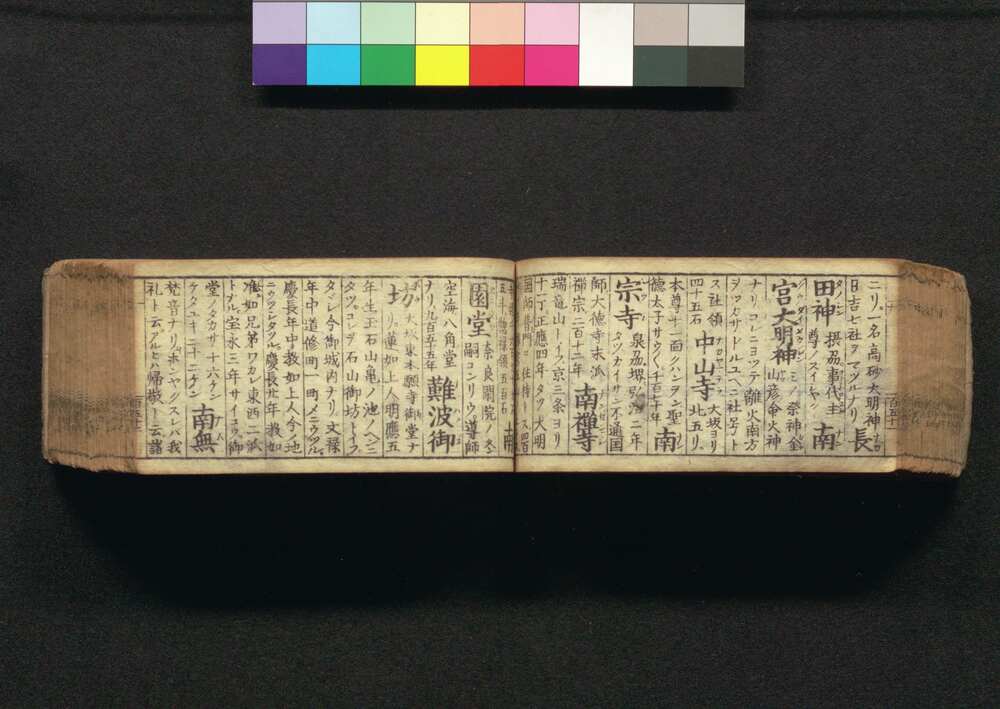 ニリ一名高砂大明神
日吉七社ヲマツルナリ 長
田神 摂刕事代主
尊ノスイヤク 南
宮大明神 ミノ祭神金
山彦命火神
ナリコレニヨツテ難火南方
四十五石 中山寺 大坂ヨリ
北五リ
本尊十一面クハンヲン聖
徳太子サウ〱千百七年 南
宗寺 泉刕堺弘治二年
師大徳寺末派
禅宗二百十二年 南禪寺
瑞亀山トイフ京三条ヨリ
十一丁正應四年タツ大明
園堂 奈良
空海八角堂
ナリ九百五十五年 難波御
坊 大坂東本願寺御堂ナ
リ蓮如上人明應五
年生玉石山亀ノ池ノヘンニ
タツコレヲ石山御坊トイフ
タヾシ今御城内ナリ文禄
年中道修町一町メニウツル
慶長年中教如上人今ノ地
ニウツシタマフ慶長廿年教如
准如兄弟ワカレ東西二派
トナル宝永三年サイコウ御
堂ノタカサ十六ケン
ケタユキ二十二ケン 南無
梵音ナリホンヤクスレバ我
礼ト云アルヒハ帰敬ト云諸